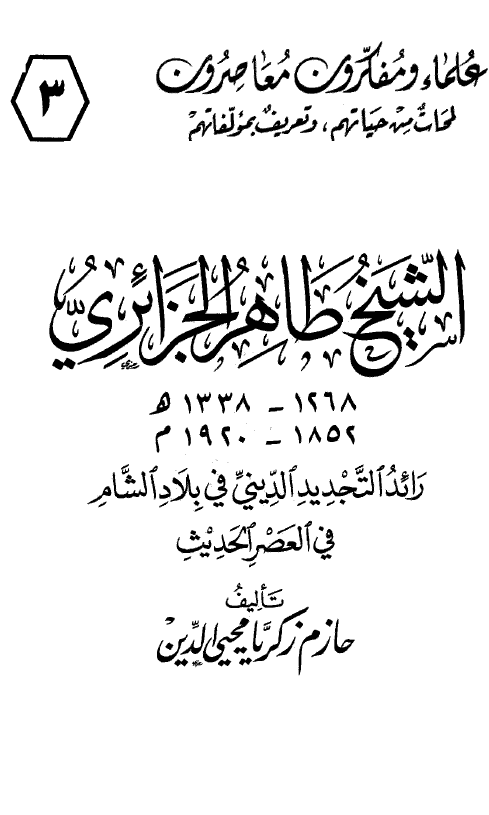 عُلمَاء وَمُفكِّرُون مُعَاصِرُون
لمحَاتٌ مِنْ حَيَاتِهم، وَتعريفٌ بمؤلّفاتهمْ
٣
الشَّيْخ طَاهِر الجَزَائِرِيّ
١٢٦٨ – ١٣٣٨ ه
١٨٥٢ – ١٩٢٠ م
رَائِدُ التَّجْدِيدِ الدِّينِيِّ في بِلَادِ الشَّامِ
في العَصْرِ الحَدِيْثِ
تَألِيفُ
حازم زكريَّا محيي الدِّين